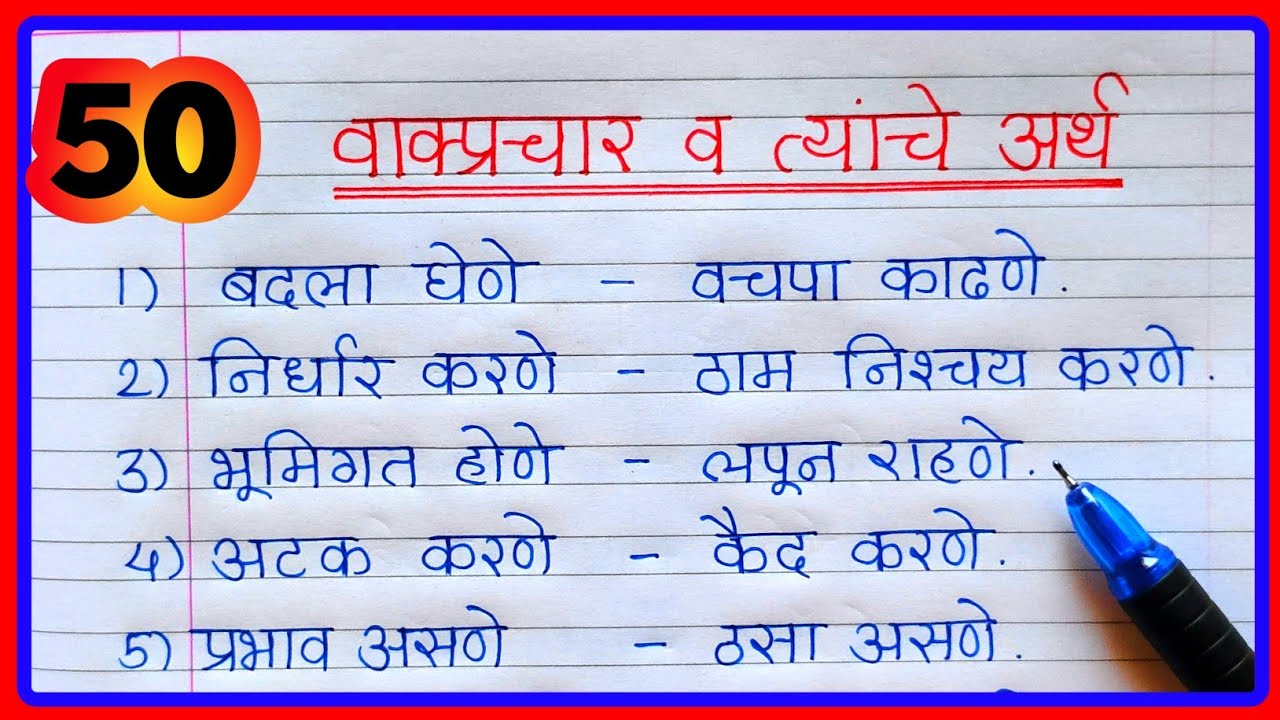 50
वाक्प्रचार व त्यांचे अर्थ
1) बदला घेणे - वचपा काढणे.
2) निर्धार करणे - ठाम निश्चय करणे.
3) भूमिगत होणे - लपून राहणे.
4) अटक करणे - कैद करणे.
5) प्रभाव असणे - ठसा असणे.